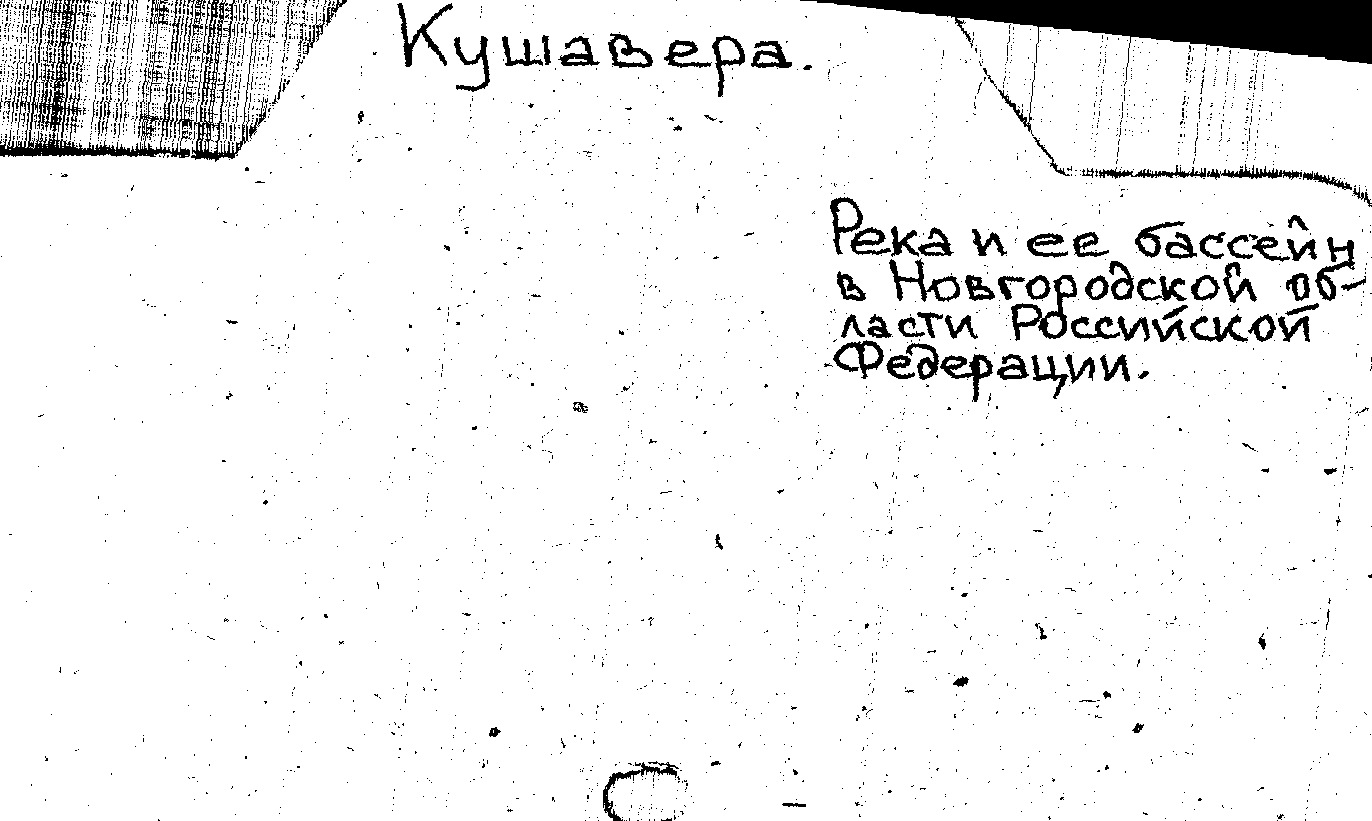 Кушавера.
Река и ее бассейн
в Новгородской об-
ласти Российской
Федерации.